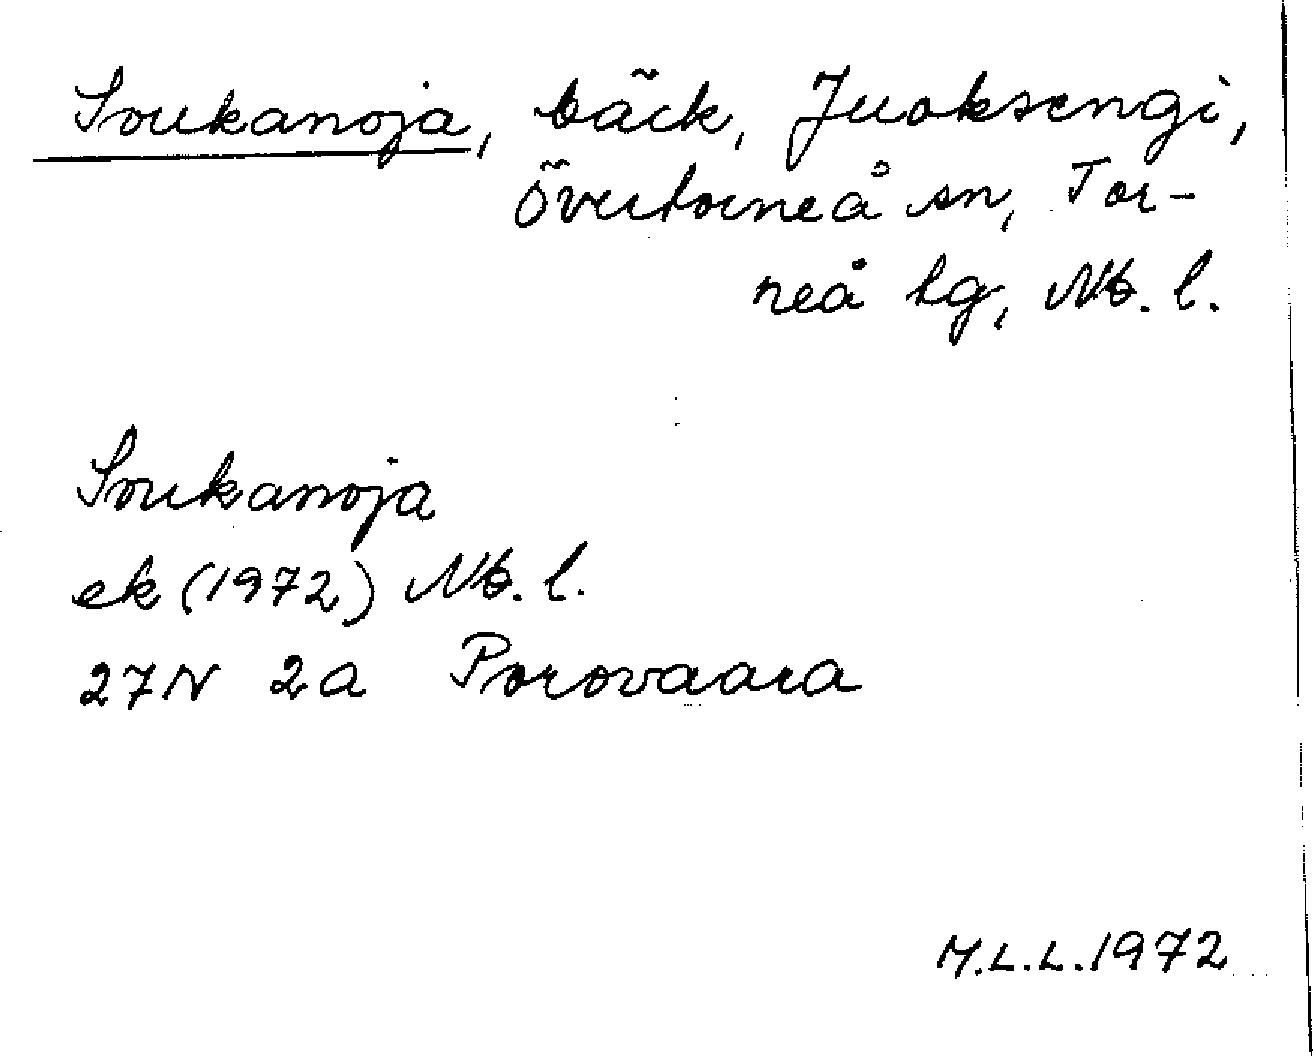 Soukanoja, bäck, Juoksengi,
Övertorneå sn, Tor-
neå lg, Nb. l.
Soukanoja
ek (1972) Nb. l.
27N 2a Porovaara
M.L.L. 1972